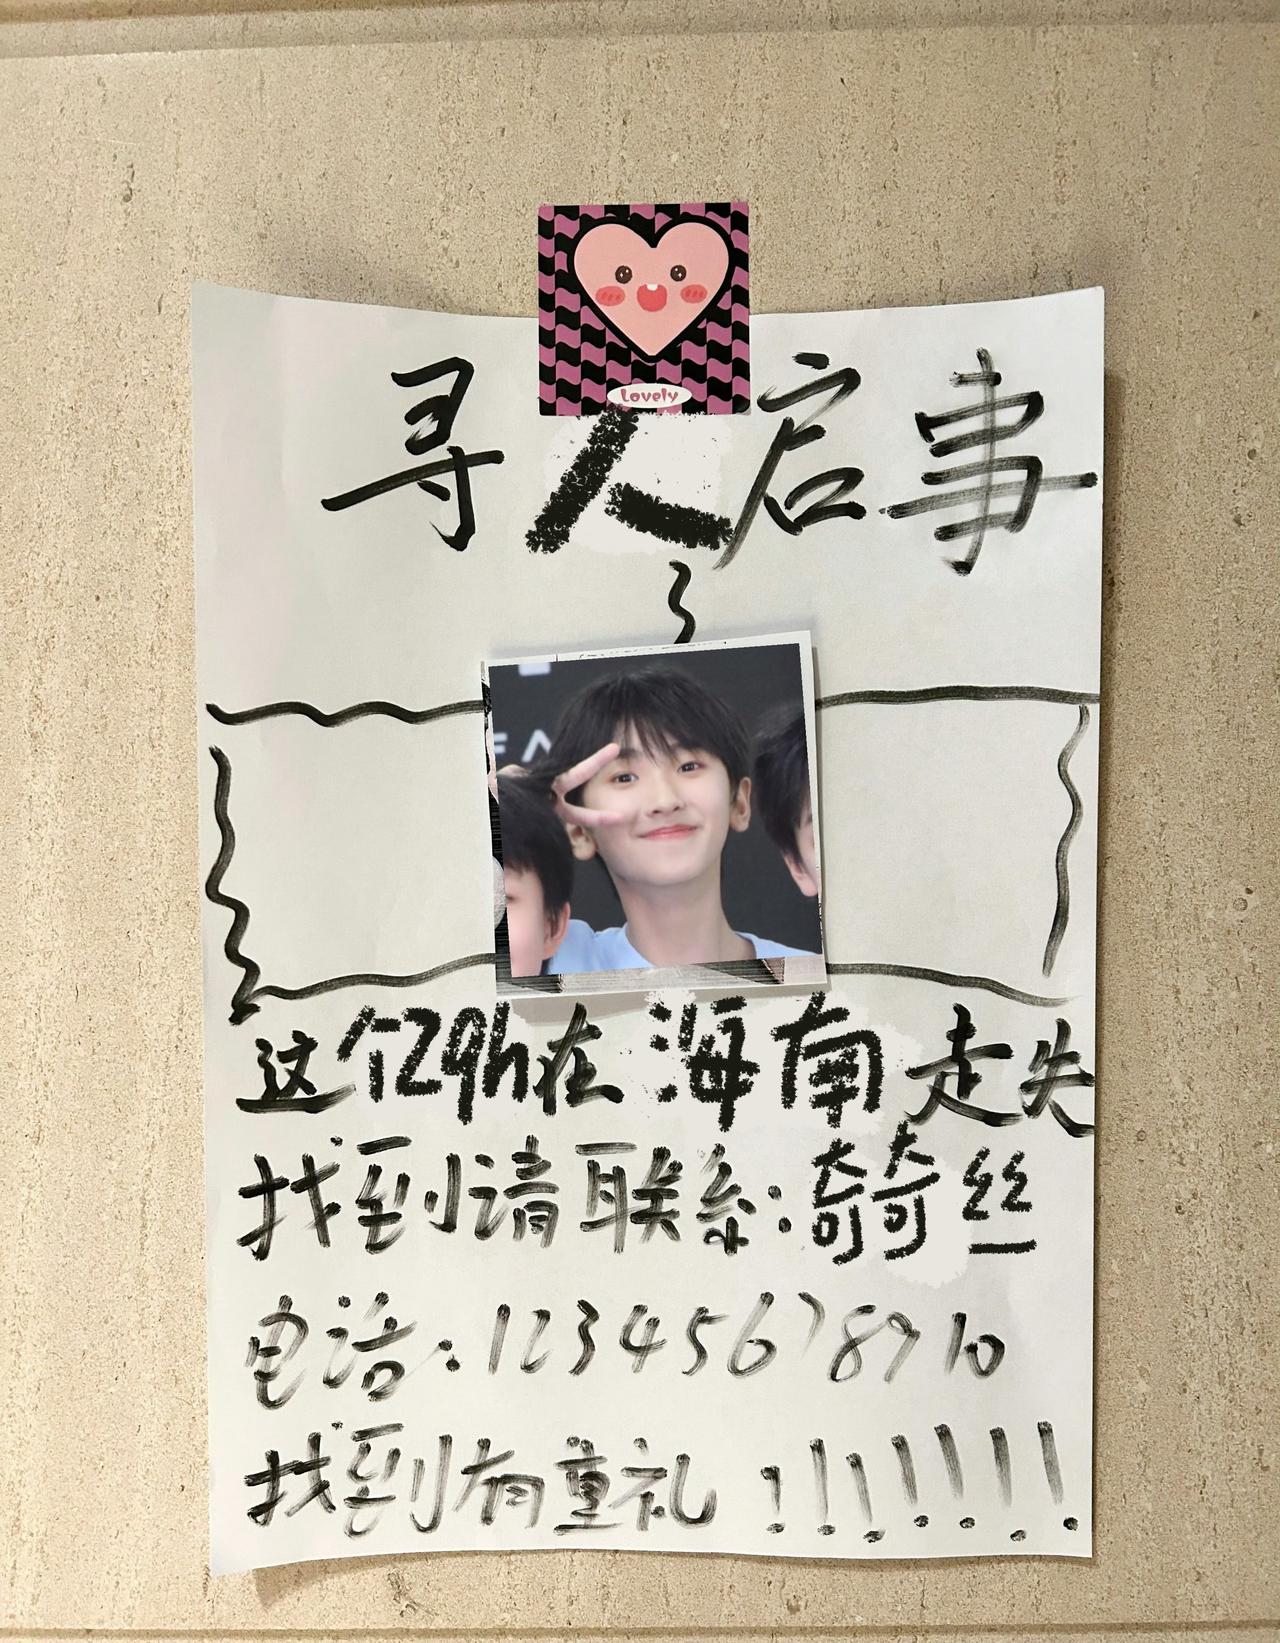 Lovely
寻人启事
FA
这个zqh在海南走失
找到请联系:奇奇丝
电话:12345678910
找到有重礼!!!!!!!